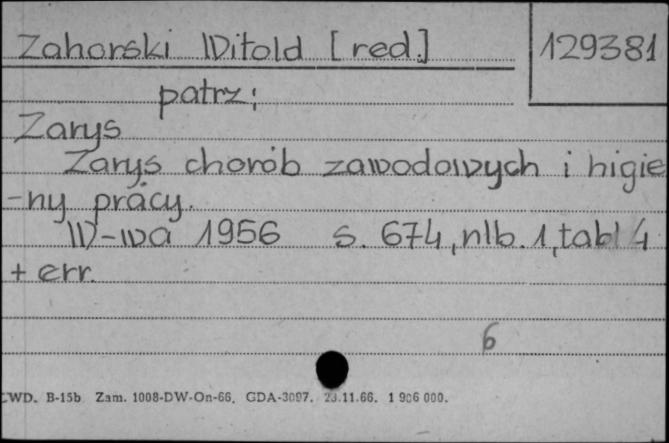 Zahorski Witold [red.] 129381
patrz:
Zarys
Zarys chorób zawodowych i higie
-ny pracy.
W-wa 1956 s. 674, nlb. 1, tabl 4
+ err.
6
CWD. B-15b Zam. 1008-DW-On-66. GDA-3097. 23.11.66. 1 906 000.